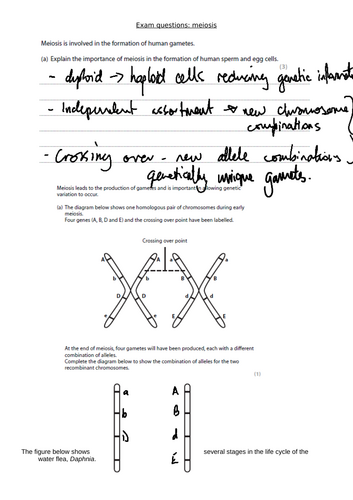 Exam questions: meiosis
Meiosis is involved in the formation of human gametes.
(a) Explain the importance of meiosis in the formation of human sperm and egg cells.
(3)
- diploid → haploid cells reducing genetic
- Independent assortment → new chromosome
combinations
- Crossing over - new allele combinations
genetically unique gametes.
Meiosis leads to the production of gametes and is important in allowing genetic
variation to occur.
(a) The diagram below shows one homologous pair of chromosomes during early
meiosis.
Four genes (A, B, D and E) and the crossing over point have been labelled.
Crossing over point
A A a a
b b B B
D D d d
e e E E
At the end of meiosis, four gametes will have been produced, each with a different
combination of alleles.
Complete the diagram below to show the combination of alleles for the two
recombinant chromosomes.
(1)
a A
b B
D d
E
The figure below shows several stages in the life cycle of the
water flea, Daphnia.